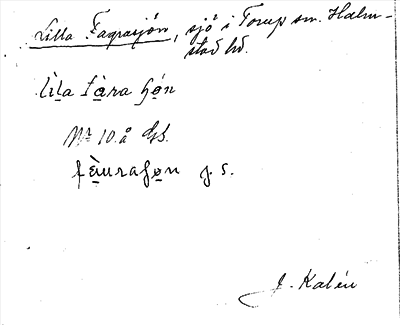 Lilla Fagrasjön, sjö i Torup sn. Halm-
stad hd.
lìla fàra ʃọ́n
Nr 10 å GS.
fàuraʃọn g. s.
J. Kalén